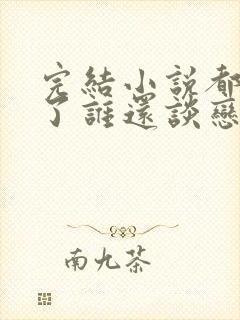 完結小說都
了誰還談戀
南九茶